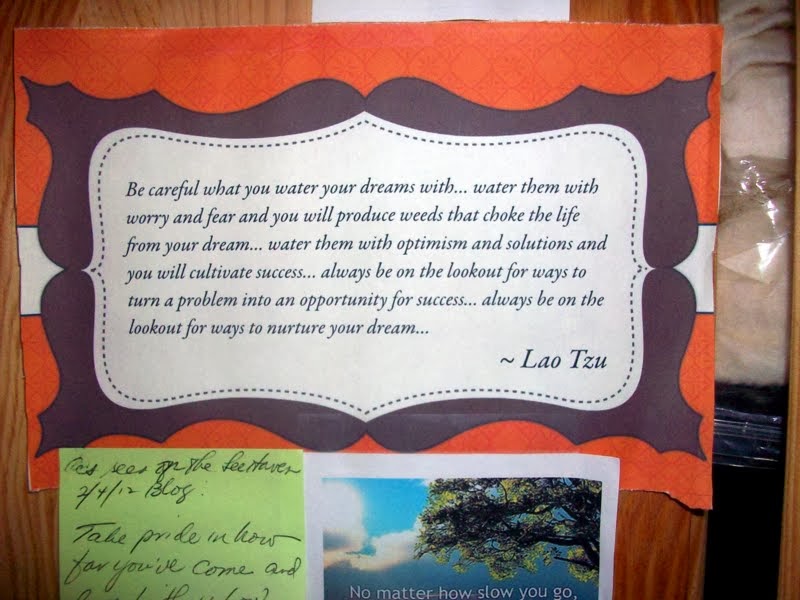 Be careful what you water your dreams with... water them with
worry and fear and you will produce weeds that choke the life
from your dream... water them with optimism and solutions and
you will cultivate success... always be on the lookout for ways to
turn a problem into an opportunity for success... always be on the
lookout for ways to nurture your dream...
~ Lao Tzu
sees on the
2/4/12 Blog:
Take pride in how
far you've come and
No matter how slow you go,